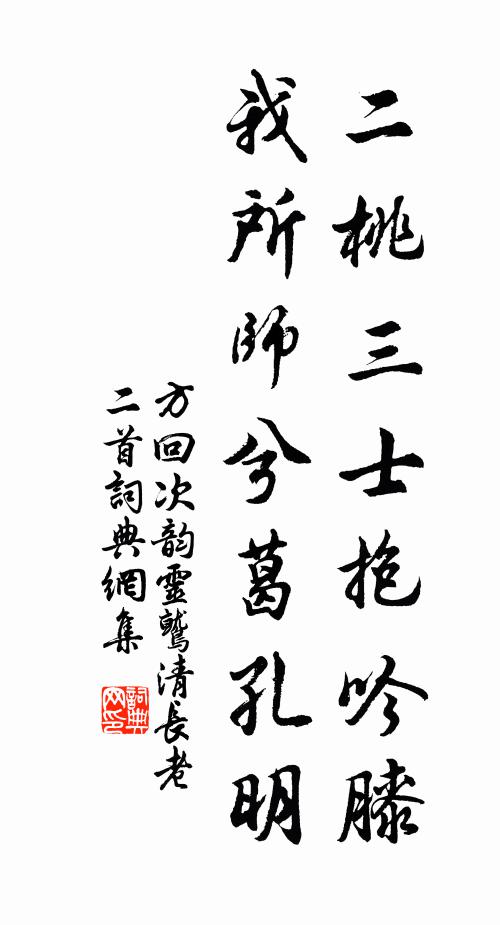 二桃三士抱吟膝
我所師兮葛孔明
方回次韵靈鷲清長老
二首詞典網集
詞典網印